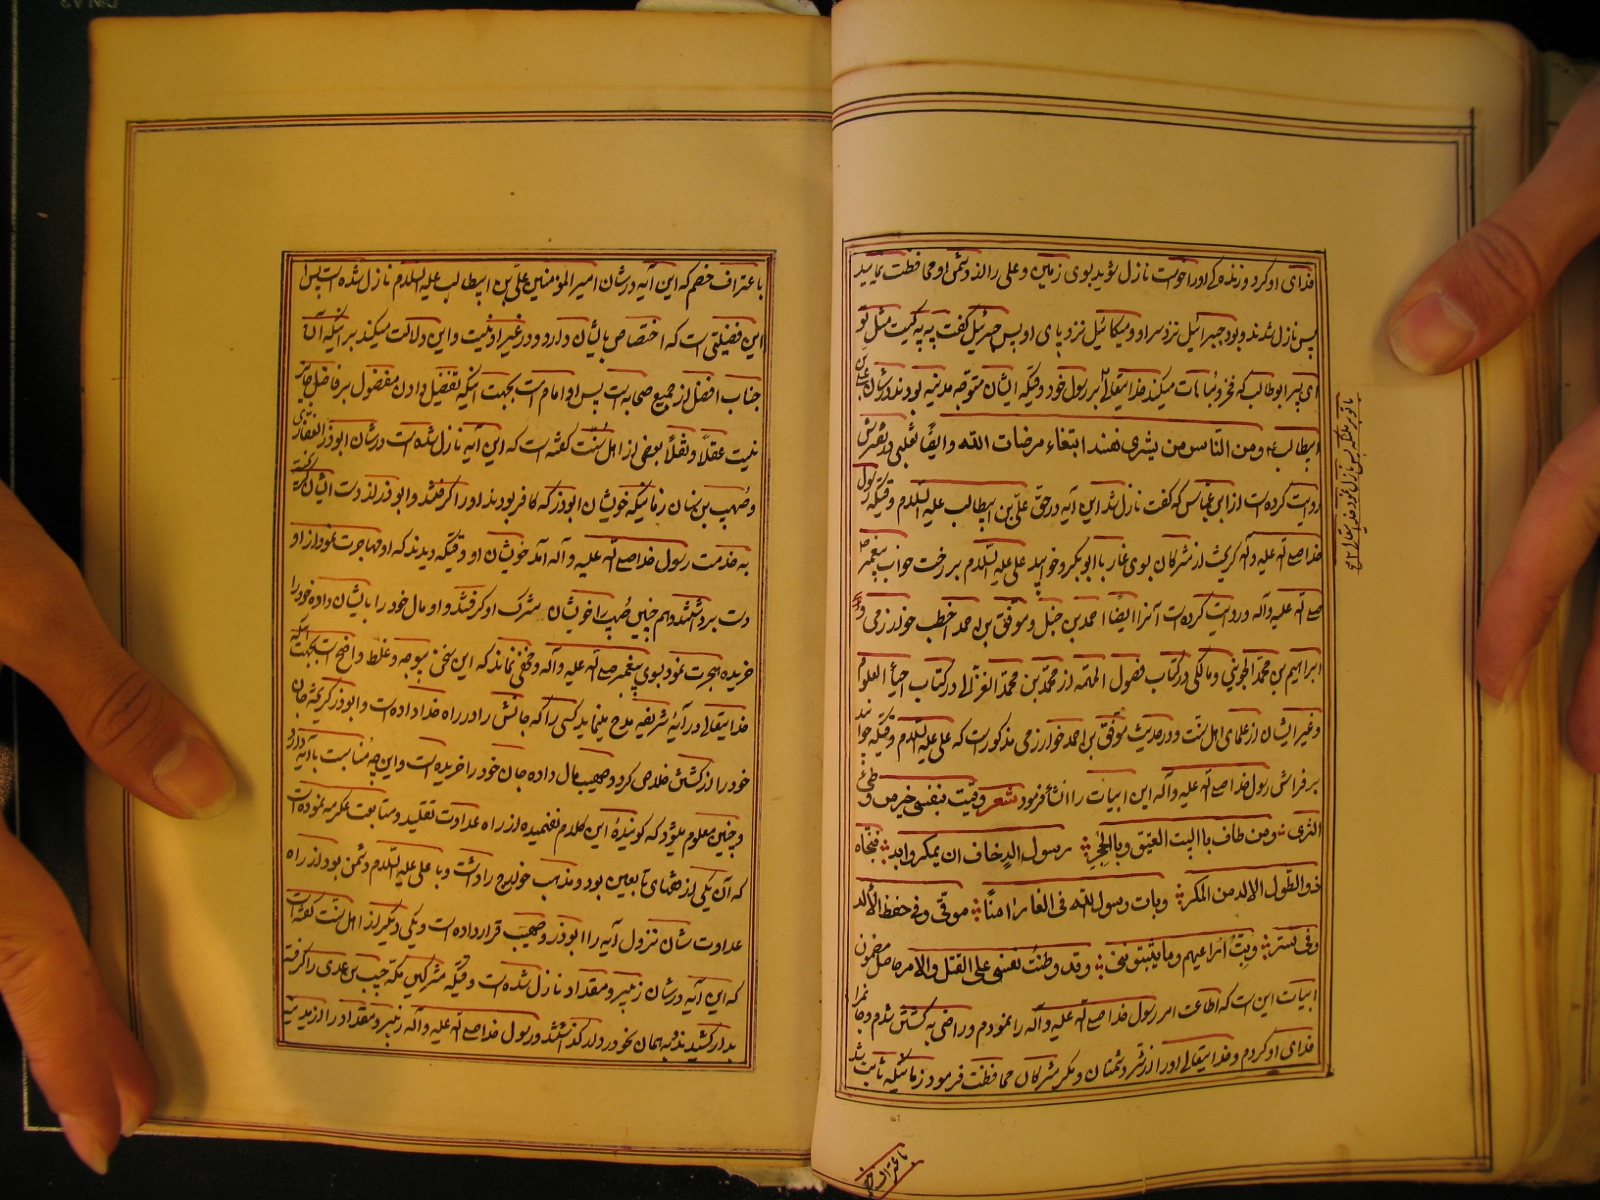 فدای او کرد و زنده که او را خواست نازل شوید بسوی زمین و علی را از دشمن او محافظت نمایید
پس نازل شدند و بود جبرائیل نزد سر او و میکائیل نزد پای او پس جبرئیل گفت به به کیست مثل تو
ای پسر ابوطالب که فخر و مباهات میکند خدایتعالی بتو بر رسول خود وقتیکه ایشان متوجه مدینه بودند در شان علی بن
ابیطالب و من الناس من یشری نفسه ابتغاء مرضات الله وایضا ثعلبی در تفسیرش
روایت کرده است از ابن عباس که گفت نازل شد این آیه در حق علی بن ابیطالب علیه السلام وقتیکه رسول
خدا صلی الله علیه و آله گریخت از مشرکان بسوی غار با ابوبکر و خوابید علی علیه السلام بر رخت خواب پیغمبر
صلی الله علیه و آله و روایت کرده است آنرا ایضا احمد بن حنبل و موفق بن احمد اخطب خوارزمی و
ابراهیم بن محمد الجوینی و مالکی در کتاب فصول المهمه از محمد بن محمد الغزالی در کتاب احیاء العلوم
و غیر ایشان از علمای اهل سنت و در حدیث موفق بن احمد خوارزمی مذکور است که علی علیه السلام وقتیکه خوابید
بر فراش رسول خدا صلی الله علیه و آله این ابیات را انشا فرمود شعر وقیت بنفسی خیر من وطی
الثری و من طاف باالبیت العتیق وبالحجر رسول اله خاف ان یمکروا به فنجاه
ذوالطول الاله من المکر وبات رسول الله فی الغار امنا موقی وفی حفظ الاله
وفی ستر وبت اراعیهم وما یثبتوننی وقد وطنت نفسی علی القتل والاسر حاصل مضمون
ابیات این است که اطاعت امر رسول خدا صلی الله علیه و آله را نمودم و راضی به کشتن شدم و جانم را
فدای او کردم و خدایتعالی او را از شر دشمنان و مکر مشرکان محافظت فرمود زمانیکه ثابت شد
باعتراف خصم
باعتراف خصم که این آیه در شان امیر المؤمنین علی بن ابیطالب علیه السلام نازل شده است پس
این فضیلتی است که اختصاص بایشان دارد و در غیر او نیست و این دلالت میکند بر اینکه آن
جناب افضل از جمیع صحابه است پس او امام است بجهت اینکه تفضیل دادن مفضول بر فاضل جایز
نیست عقلاً و نقلاً بعضی از اهل سنت گفته است که این آیه نازل شده است در شان ابوذر الغفاری
و صهیب بن سنان زمانیکه خویشان ابوذر که کافر بودند او را گرفتند و ابوذر از دست ایشان گریخته
به خدمت رسول خدا صلی الله علیه و آله آمد خویشان او وقتیکه دیدند که او مهاجرت نمود از او
دست برداشتند و هم چنین صهیب را خویشان مشرک او گرفتند و او مال خود را بایشان داده خود را
خریده هجرت نمود بسوی پیغمبر صلی الله علیه و آله و مخفی نماند که این سخن بیوجه و غلط واضح است بجهت اینکه
خدایتعالی در آیه شریفه مدح مینماید کسی را که جانش را در راه خدا داده است و ابوذر گریخته جان
خود را از کشتن خلاص کرد و صهیب مال داده جان خود را خریده است و این چه مناسبت با آیه دارد
و چنین معلوم میشود که گوینده این کلام نفهمیده از راه عداوت تقلید و متابعت عکرمه نموده است
که آن یکی از فقهای تابعین بود و مذهب خوارج را داشت و با علی علیه السلام دشمن بود از راه
عداوت شان نزول آیه را ابوذر و صهیب قرار داده است و یکی دیگر از اهل سنت گفته است
که این آیه در شان زبیر و مقداد نازل شده است وقتیکه مشرکین مکه خبیب بن عدی را گرفته
بدار کشیدند و بهمان نحو در دار گذاشتند و رسول خدا صلی الله علیه و آله زبیر و مقداد را از مدینه